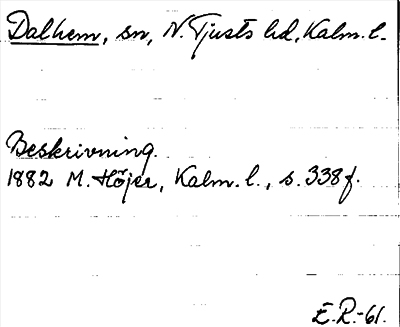 Dalhem, sn, N. Tjusts hd, Kalm. l.
Beskrivning.
1882 M. Höjer, Kalm. l., s. 338 f.
E.R.-61.